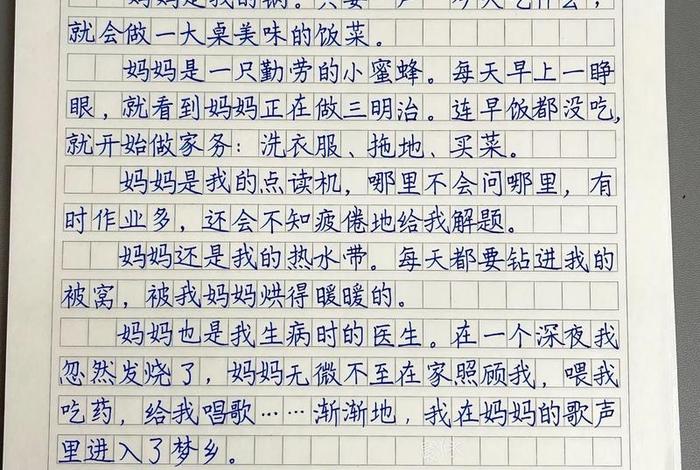 妈妈是我的锅。只要一声“今天吃什么，
就会做一大桌美味的饭菜。
妈妈是一只勤劳的小蜜蜂。每天早上一睁
眼，就看到妈妈正在做三明治。连早饭都没吃，
就开始做家务：洗衣服、拖地、买菜。
妈妈是我的点读机，哪里不会问哪里，有
时作业多，还会不知疲倦地给我解题。
妈妈还是我的热水带。每天都要钻进我的
被窝，被我妈妈烘得暖暖的。
妈妈也是我生病时的医生。在一个深夜我
忽然发烧了，妈妈无微不至在家照顾我，喂我
吃药，给我唱歌……渐渐地，我在妈妈的歌声
里进入了梦乡。